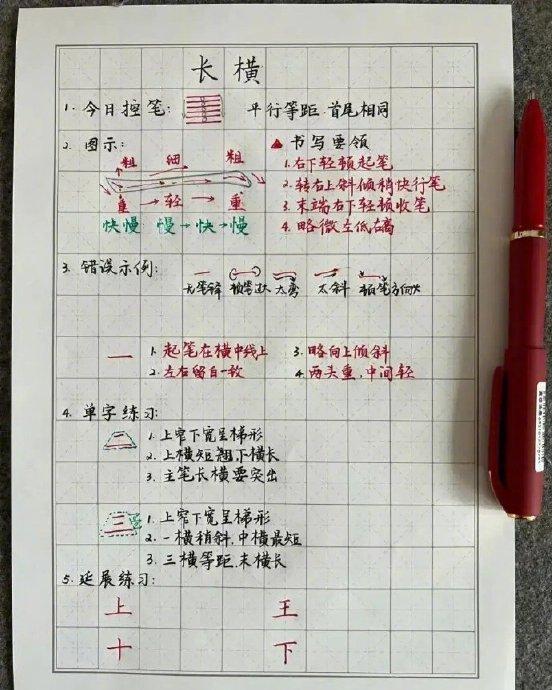 长横
1. 今日控笔: 平行等距 首尾相同
2. 图示: ▲ 书写要领
粗 细 粗
重→轻→重
快慢 慢→快→慢
1. 右下轻顿起笔
2. 转右上斜倾稍快行笔
3. 末端右下轻顿收笔
4. 略微左低右高
3. 错误示例:
无笔锋 顿笔过大 太弯 太斜 顿笔方向×
一
1. 起笔在横中线上
2. 左右留白一致
3. 略向上倾斜
4. 两头重,中间轻
4. 单字练习:
二
1. 上窄下宽呈梯形
2. 上横短翘下横长
3. 主笔长横要突出
三
1. 上窄下宽呈梯形
2. 一横稍斜,中横最短
3. 三横等距,末横长
5. 延展练习:
上 王
十 下